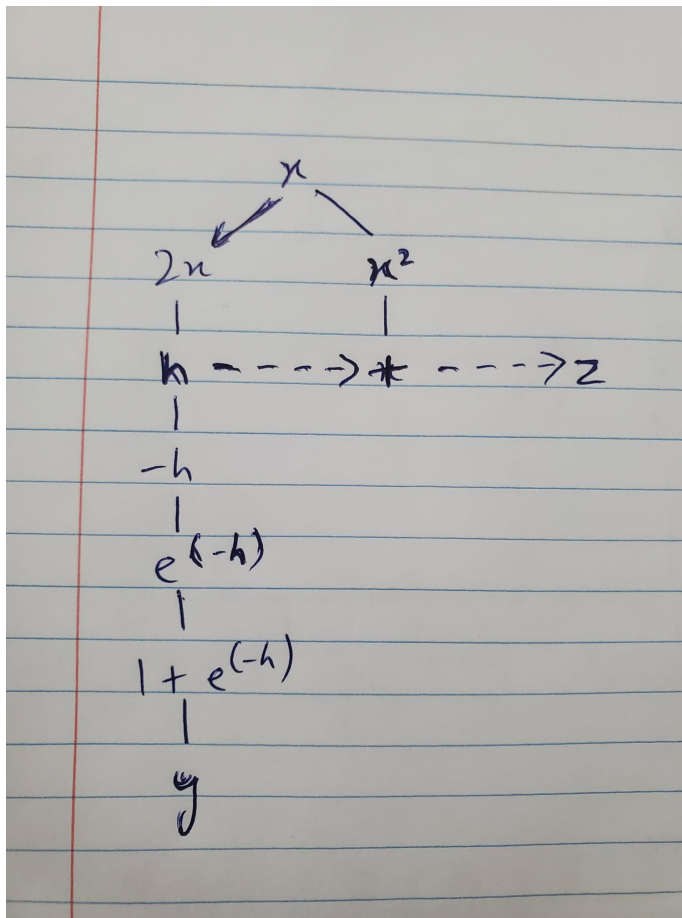 x
2x x²
h ----> * ----> z
-h
e^(-h)
1 + e^(-h)
y